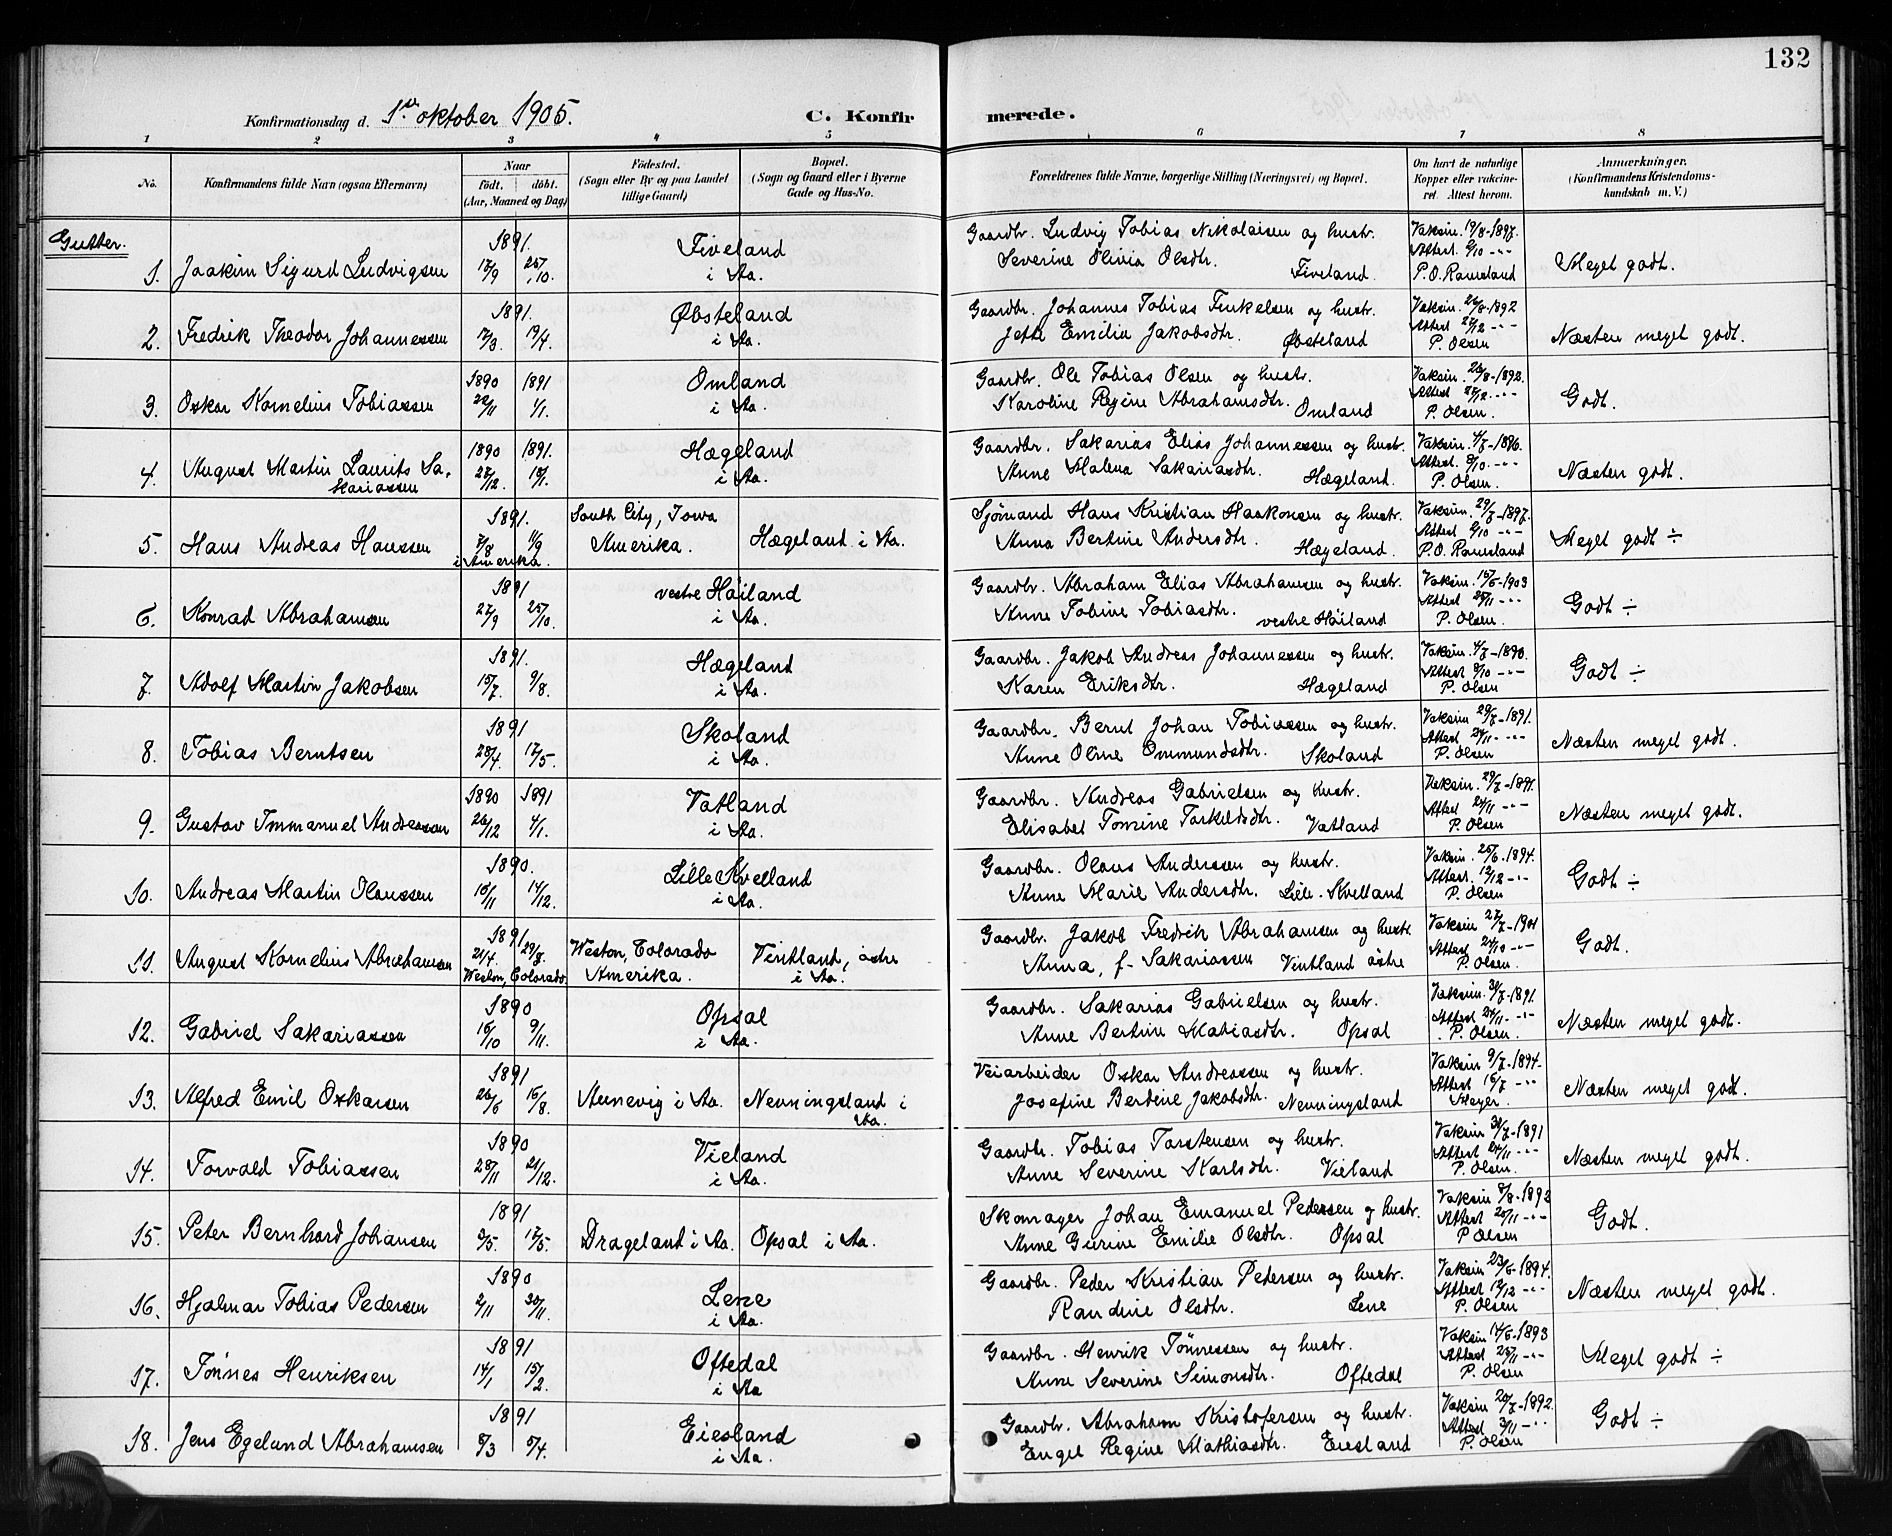 132
Konfirmationsdag d. 1ste oktober 1905. C. Konfirmerede.
1 2 3 4 5 6 7 8
No. Konfirmandens fulde Navn (ogsaa Efternavn) Naar födt, döbt. (Aar, Maaned og Dag) Födested. (Sogn eller By og paa Landet tillige Gaard) Bopæl. (Sogn og Gaard eller i Byerne Gade og Hus-No. Forældrenes fulde Navne, borgerlige Stilling (Næringsvei) og Bopæl. Om havt de naturlige Kopper eller vakcineret. Attest herom. Anmærkninger. (Konfirmandens Kristendomskundskab m. V.)
Gutter.
1. Joakim Sigurd Ludvigsen 1891. 17/9 25/10. Fiveland i Aa. Gaardbr. Ludvig Tobias Nikolaisen og hustr.
Severine Olivia Olsdtr. Fiveland. Vaksin. 19/8-1897. Attest 6/10 -"- P. O. Ramsland Meget godt.
2. Fredrik Theodor Johannessen 1891. 17/3 19/4. Øbsteland i Aa. Gaardbr. Johannes Tobias Finkelsen og hustr.
Jette Emilie Jakobsdtr. Øbsteland Vaksin. 26/8-1892 Attest 27/12 -"- P. Olsen Næsten meget godt.
3. Oskar Kornelius Tobiassen 1890 22/11 1891 1/1. Omland i Aa. Gaardbr. Ole Tobias Olsen og hustr.
Karoline Regine Abrahamsdtr. Omland Vaksin. 26/8-1892. Attest 27/12. -"- P. Olsen. Godt.
4. August Martin Laurits Sakariassen 1890 27/12. 1891. 18/1. Hægeland i Aa. Gaardbr. Sakarias Elias Johannessen og hustr.
Anne Malena Sakariasdtr. Hægeland. Vaksin. 4/7-1890. Attest 8/10. -"- P. Olsen. Næsten godt.
5. Hans Andreas Hanssen 1891. 7/8 11/9 i Amerika. South City, Iowa Amerika. Hægeland i Aa. Sjømand Hans Kristian Haakonsen og hustr.
Anna Bertine Andersdtr. Hægeland. Vaksin. 29/7-1897. Attest 6/10 -"- P. O. Ramsland Meget godt ÷
6. Konrad Abrahamsen 1891 27/9 25/10. vestre Høiland i Aa. Gaardbr. Abraham Elias Abrahamsen og hustr.
Anne Tobine Tobiasdtr. vestre Høiland Vaksin. 15/6-1903 Attest 28/11 -"- P. Olsen. Godt ÷
7. Adolf Martin Jakobsen 1891. 15/7. 9/8. Hægeland i Aa. Gaardbr. Jakob Andreas Johannessen og hustr.
Karen Eriksdtr. Hægeland Vaksin. 4/7-1890. Attest 8/10 -"- P. Olsen Godt ÷
8. Tobias Berntsen 1891 28/4. 17/5. Skoland i Aa. Gaardbr. Bernt Johan Tobiassen og hustr.
Anne Oline Ommundsdtr. Skoland Vaksin 29/7-1891. Attest 24/11 -"- P. Olsen Næsten meget godt.
9. Gustav Immanuel Andreassen 1890 26/12 1891 4/1. Vatland i Aa. Gaardbr. Andreas Gabrielsen og hustr.
Elisabet Tomine Torkildsdtr. Vatland Vaksin. 29/7-1891. Attest 24/11 -"- P. Olsen Næsten meget godt.
10. Andreas Martin Olaussen 1890. 16/11 14/12. Lille Kvelland i Aa. Gaardbr. Olaus Anderssen og hustr.
Anne Marie Andersdtr. Lille-Kvelland Vaksin. 25/6-1894. Attest 12/12 -"- P. Olsen Godt ÷
11. August Kornelius Abrahamsen 1891 21/4. 29/8. Weston, Colorado Weston, Colorado Amerika. Vintland, østre i Aa. Gaardbr. Jakob Fredrik Abrahamsen og hustr.
Anna, f. Sakariassen Vintland østre Vaksin 27/7-1901 Attest 24/10 -"- P. Olsen. Godt.
12. Gabriel Sakariassen 1890 16/10 9/11. Opsal i Aa. Gaardbr. Sakarias Gabrielsen og hustr.
Anne Bertine Mathiasdtr. Opsal Vaksin. 31/7-1891. Attest 24/11. -"- P. Olsen. Næsten meget godt.
13. Alfred Emil Oskarsen 1891 26/6 16/8. Aunevig i Aa. Nevningsland i Aa. Veiarbeider Oskar Andreassen og hustr.
Josefine Berdine Jakobsdtr. Nevningsland Vaksin 9/7-1894. Attest 16/7 -"- Meyer. Næsten meget godt.
14. Torvald Tobiassen 1890 28/11 21/12. Vieland i Aa. Gaardbr. Tobias Torstensen og hustr.
Anne Severine Karlsdtr. Vieland Vaksin 31/7-1891 Attest 24/11 -"- P. Olsen. Næsten meget godt.
15. Peter Bernhard Johansen 1891 2/5. 17/5. Drageland i Aa. Opsal i Aa. Skomager Johan Emanuel Pedersen og hustr.
Anne Gurine Emilie Olsdtr. Opsal Vaksin 8/8-1892 Attest 20/11 -"- P. Olsen Godt.
16. Hjalmar Tobias Pedersen 1890 2/11 30/11. Lene i Aa. Gaardbr. Peder Kristian Pedersen og hustr.
Randine Olsdtr. Lene Vaksin 23/6-1894. Attest 12/12 -"- P. Olsen Næsten meget godt.
17. Tønnes Henriksen 1891 14/1 15/2. Oftedal i Aa Gaardbr. Henrik Tønnessen og hustr.
Anne Severine Simonsdtr. Oftedal Vaksin 14/6-1893 Attest 25/11 -"- P. Olsen Meget godt ÷
18. Jens Egeland Abrahamsen 1891 8/3 5/4. Eiesland i Aa. Gaardbr. Abraham Kristofersen og hustr.
Engel Regine Mathiasdtr. Eiesland Vaksin. 20/7-1892. Attest 3/11 -"- P. Olsen Godt ÷